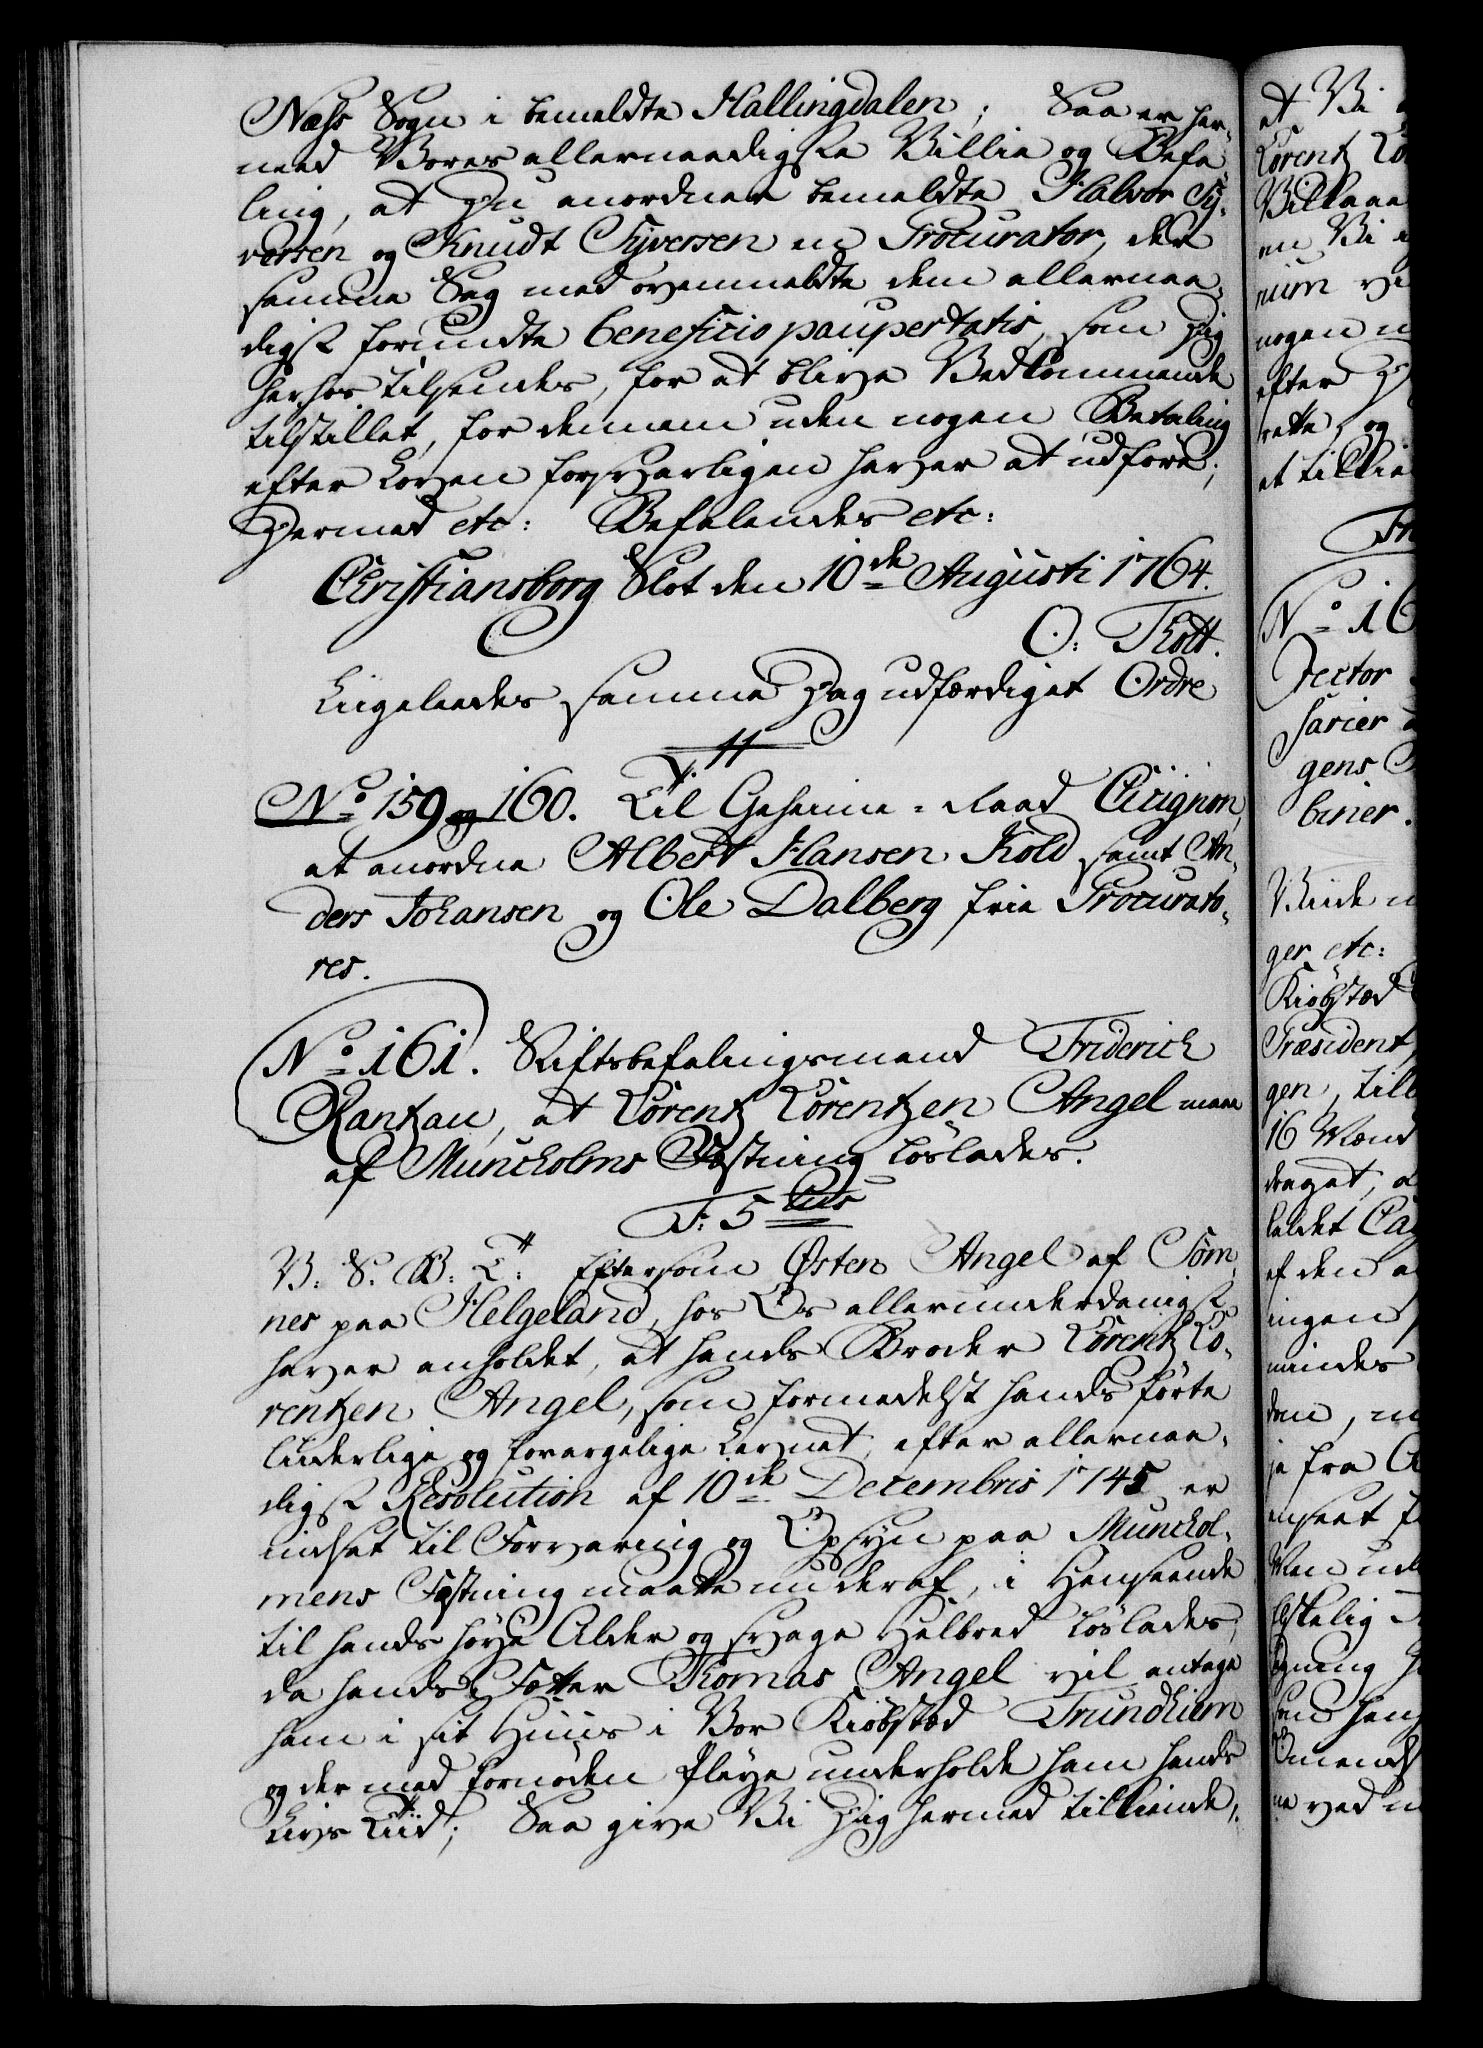 Næss Sogn i bemeldte Hallingdalen; Saa er her-
med Vores allernaadigste Villie og Befa-
ling, at Du anordner bemeldte Halvor Sy-
versen og Knudt Syversen en Procurator, der
samme Sag med ovenmeldte dem allernaa-
digst forundte beneficio paupertatis, som Dig
herhos tilsendes, for at blive Vedkommende
tilstillet, for dennem uden nogen Betaling
efter Loven forsvarligen haver at udføre;
Dermed etc: Befalendes etc:
Christiansborg Slot den 10de Augusti 1764.
O: Thott.
Liigeleedes samme Dag udfærdiget Ordre
No 159 og 160. Til Geheime-Raad Cicignon,
at anordne Albert Hansen Kold samt An-
ders Johansen og Ole Dalberg frie Procurato-
res.
No 161. Stiftsbefalingsmand Friderich
Rantzau, at Lorentz Lorentzen Angel maae
af Munckholms Fæstning løslades.
F: 5tus
V: S: B: T: Eftersom Østen Angel af Søm-
nes paa Helgeland, hos Os allerunderdanigst
haver anholdet, at hands Broder Lorentz Lo-
rentzen Angel, som formedelst hands førte
liiderlige og forargelige Levnet, efter allernaa-
digst Resolution af 10de Decembris 1745 er
indsat til Forvaring og Opsyn paa Munckhol-
mens Fæstning maatte nu deraf, i Henseende
til hands høye Alder og svage Helbred løslades,
da hands Fetter Thomas Angel vil antage
ham i sit Huus i Vor Kiøbstæd Trundhiem
og der med fornøden Pleye underholde ham hands
Livs Tiid; Saa give Vi Dig hermed tilkiende,
at Vi
Lorentz Lo
Villaae
en Vi
nium
nogen
efter
rette, og
et tillie
Fr
No 16
rector
sarier
gens
binier.
Viide
ger etc:
Kiøbstæd
Præsident
gen, till
16 Mænd
draget,
kaldet Ca
af den
ingen
mindes
dem,
ja fra
anseet
Men ud
ne ved